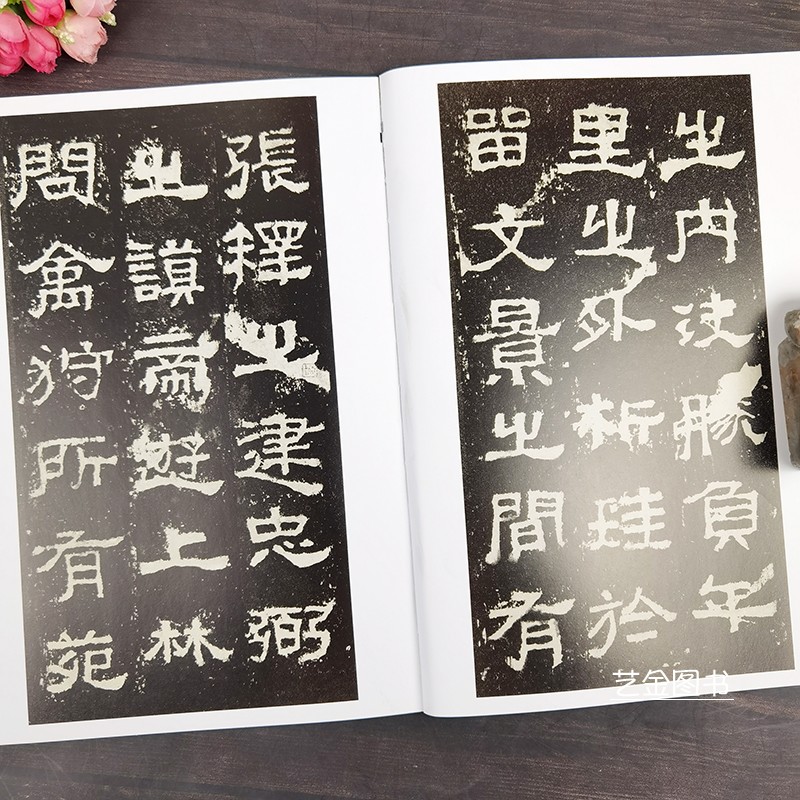 之內決勝負千
里之外析珪於
留文景之間有
張釋之建忠弼
之謨帝遊上林
問禽狩所有苑
艺金图书